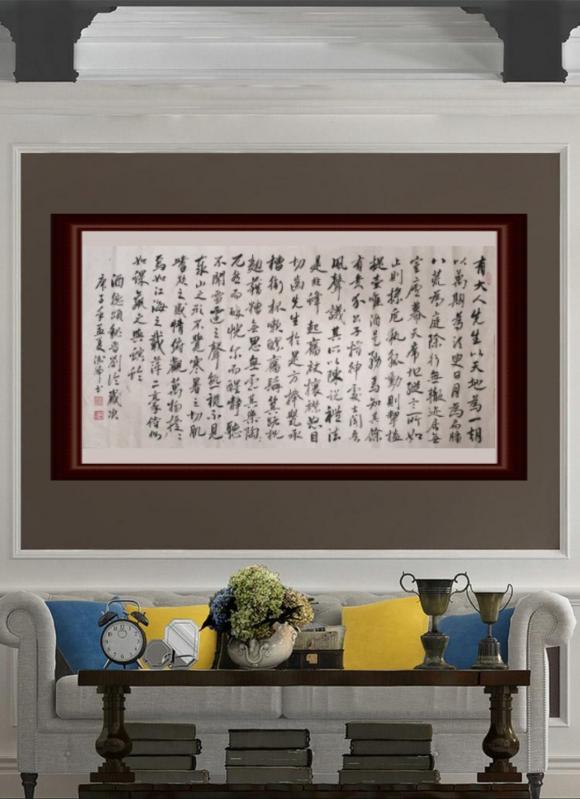 有大人先生以天地為一朝
以萬期為須臾日月為扃牖
八荒為庭除行無轍迹居無
室廬幕天席地縱意所如
止則操卮執觚動則挈榼
提壺唯酒是務焉知其餘
有貴介公子搢紳處士聞吾
風聲議其所以陳說禮法
是非鋒起奮袂攘襟怒目
切齒先生於是方捧甖承
槽銜杯漱醪奮髯箕踞枕
麴藉糟無思無慮其樂陶
兀然而醉恍尔而醒靜聽
不聞雷霆之聲熟視不見
泰山之形不覺寒暑之切肌
嗜欲之感情俯觀萬物擾々
焉如江海之載萍二豪侍側
如蜾蠃之與螟蛉
酒德頌 劉伶歲次
庚子年孟夏 書